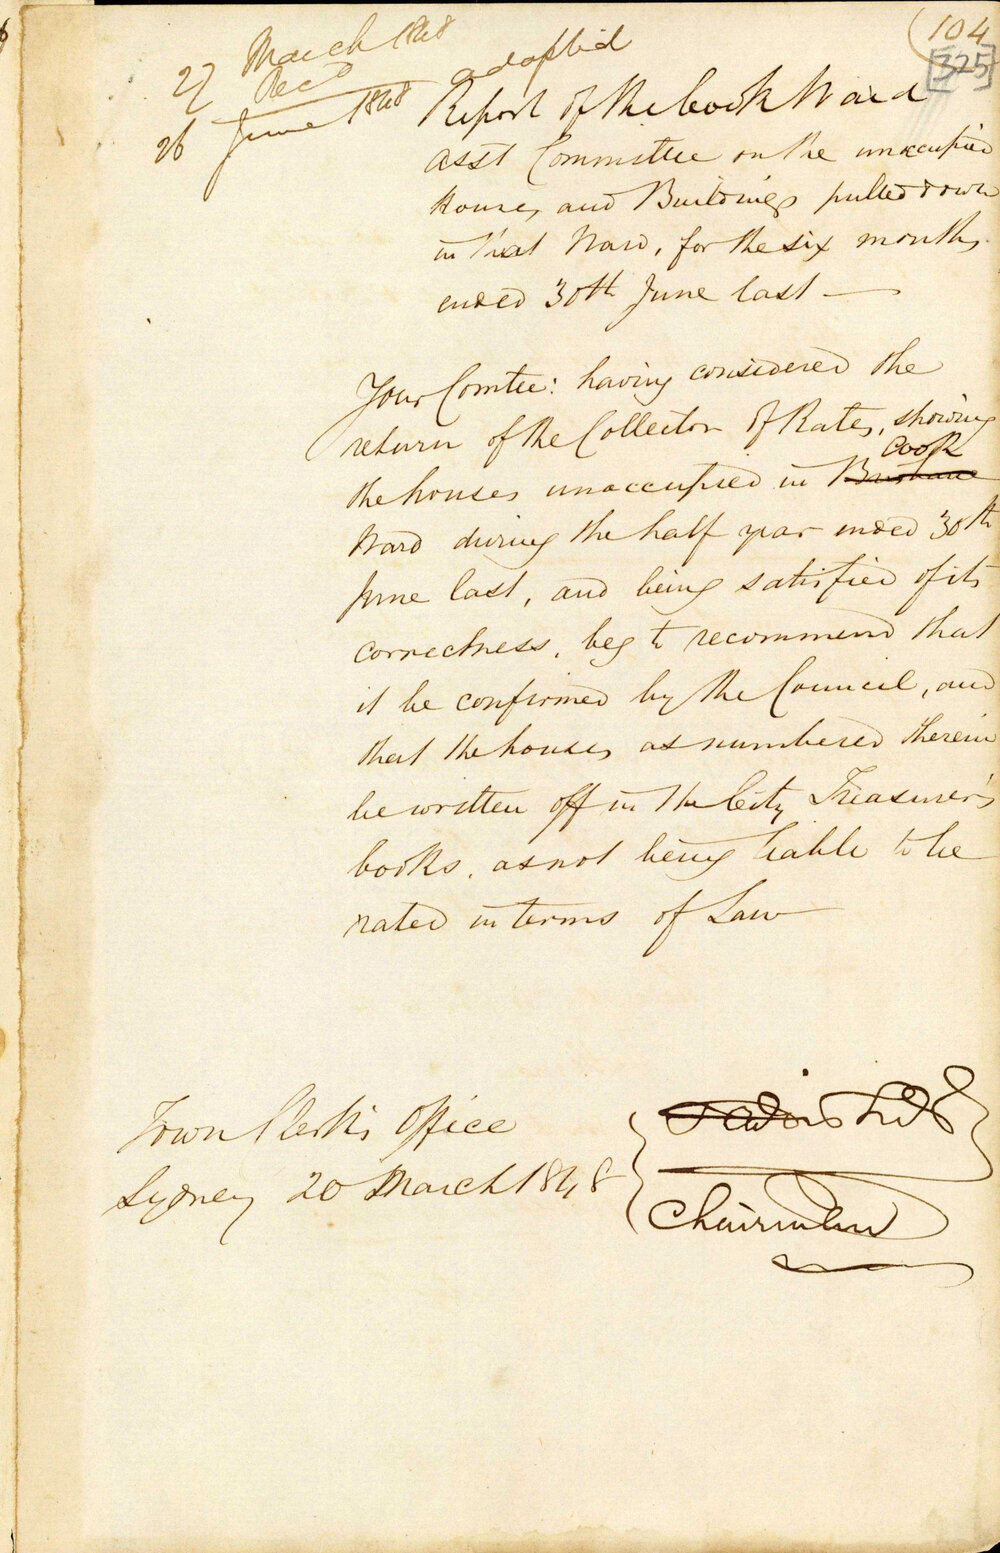 (104
[325]
27 March 1848
Recd
26 June 1848 adopted
Report of the Cook Ward
Asst Committee on the unoccupied
Houses and Buildings pulled down
in that Ward, for the six months
ended 30th June last —
Your Comtee: having considered the
return of the Collector of Rates, showing
Cook
the houses unoccupied in Brisbane
Ward during the half year ended 30th
June last, and being satisfied of its
correctness, beg to recommend that
it be confirmed by the Council, and
that the houses as numbered therein
be written off in the City Treasurer's
books, as not being liable to be
rated in terms of Law
Town Clerk's Office
Sydney 20 March 1848
Chairman